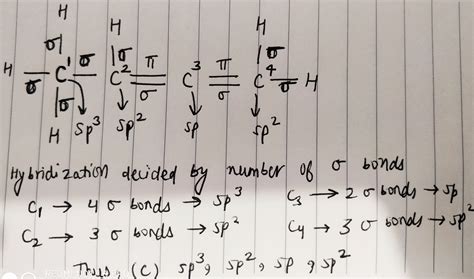 H H H
σ σ
H σ C¹ σ C² π σ C³ π σ C⁴ σ H
σ
H sp³ sp² sp sp²
Hybridization decided by number of σ bonds
C₁ → 4 σ bonds → sp³
C₂ → 3 σ bonds → sp²
C₃ → 2 σ bonds → sp
C₄ → 3 σ bonds → sp²
Thus, (C) sp³, sp², sp, sp²